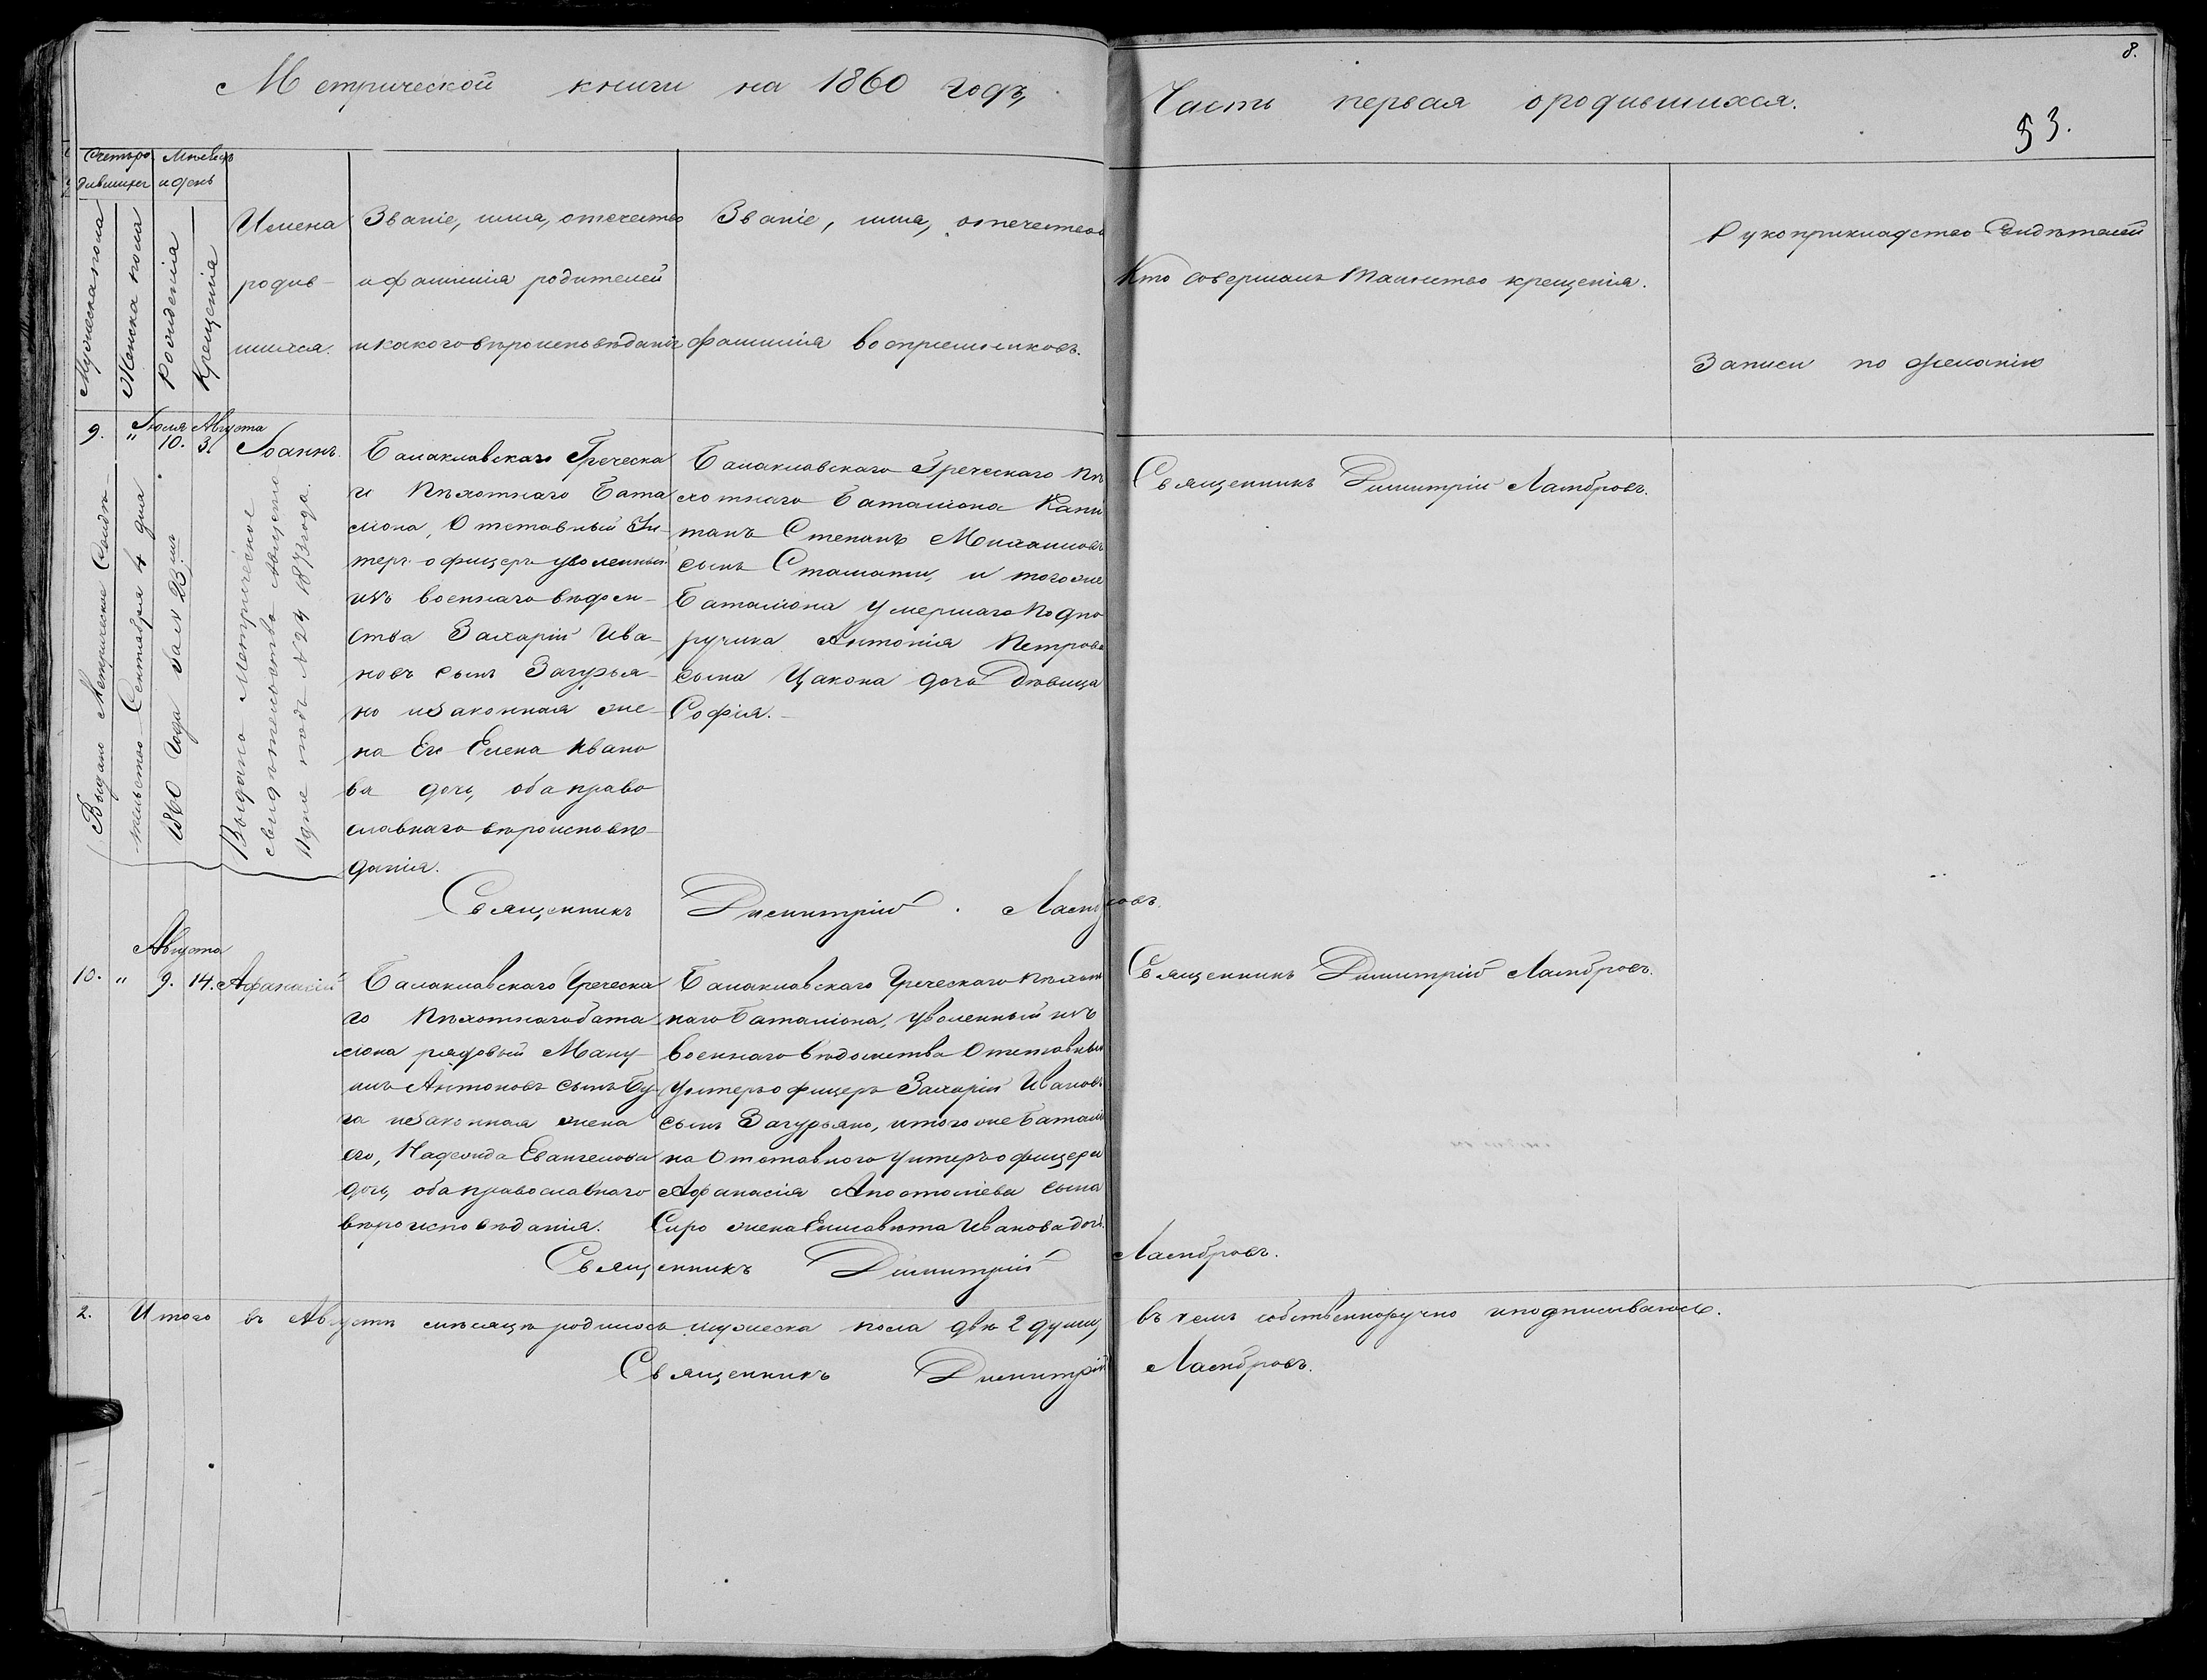 Метрической книги на 1860 годъ,
Часть первая ородившихся.
8.
53.
Счетъ ро-
дившихся
Мѣсяцъ
и день
Мужеска пола
Женска пола
Рожденія
Крещенія
Имена
родив-
шихся.
Званіе, имя, отечество
и фамилія родителей
и какого вѣроисповѣданія
Званіе, имя, отечество
фамилія воспріемниковъ.
Кто совершалъ таинство крещенія.
Рукоприкладство свидѣтелей
Записи по желанію
9. " Іюля 10. Августа 3. Іоаннъ.
Балаклавскаго Греческа
го Пѣхотнаго Бата
ліона, Отставный Ун-
теръ-офицеръ уволенный
изъ военнаго вѣдом-
ства Захарій Ива-
новъ сынъ Загурья-
но изаконная же-
на Его Елена Ивано
ва дочь, оба право
славнаго вѣроисповѣ-
данія.
Балаклавскаго Греческаго Пѣ
хотнаго Баталіона Капи
танъ Степанъ Михаиловъ
сынъ Стамати, и тогоже
Баталіона умершаго Подпо
ручика Антонія Петрова
сына Цакона дочь Дѣвица
Софія.-
Священникъ Димитрій Ламбровъ.
Выдано Метрическое Свидѣ-
тельство Сентября 4 дня
1860 года за № 23.мъ
Выдано Метрическое
свидѣтельство Августа
11 дня подъ № 24 1873 года.
Священникъ Димитрій Ламбровъ.
10. " Августа 9. 14. Афанасій
Балаклавскаго Греческа
го Пѣхотнаго бата
ліона рядовый Ману-
илъ Антоновъ сынъ Бу-
га изаконная жена
его, Надежда Евангелова
дочь, оба православнаго
вѣроисповѣданія.
Балаклавскаго Греческаго Пѣхот
наго Баталіона, уволенный изъ
военнаго вѣдомства Отставный
Унтеръ офицеръ Захарій Ивановъ
сынъ Загурьяно, итого же Баталіо
на Отставного унтеръ офицера
Афанасія Апостоліева сына
Сиро жена Елисавета Иванова дочь.
Священникъ Димитрій Ламбровъ.
Священникъ Димитрій Ламбровъ.
2. Итого въ Августѣ мѣсяцѣ родилось мужеска пола двѣ 2 души, въ чемъ собственноручно иподписываюсь.
Священникъ Димитрій Ламбровъ.